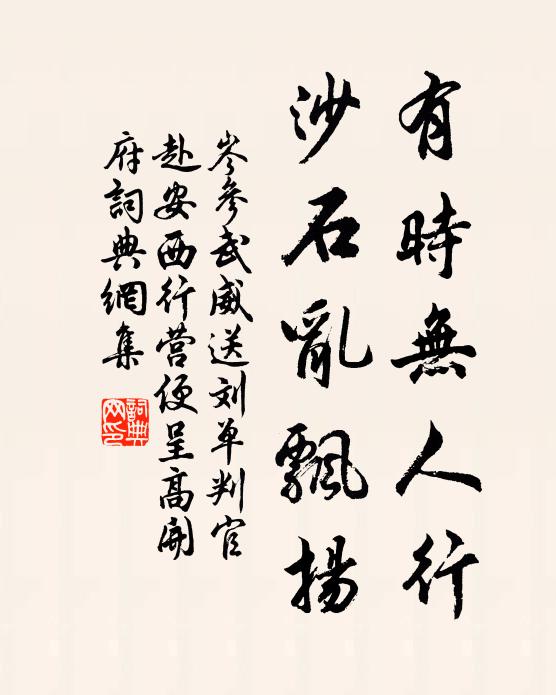 有時無人行
沙石亂飄揚
岑參武威送刘单判官
赴安西行营便呈高開
府詞典網集
詞典
网印